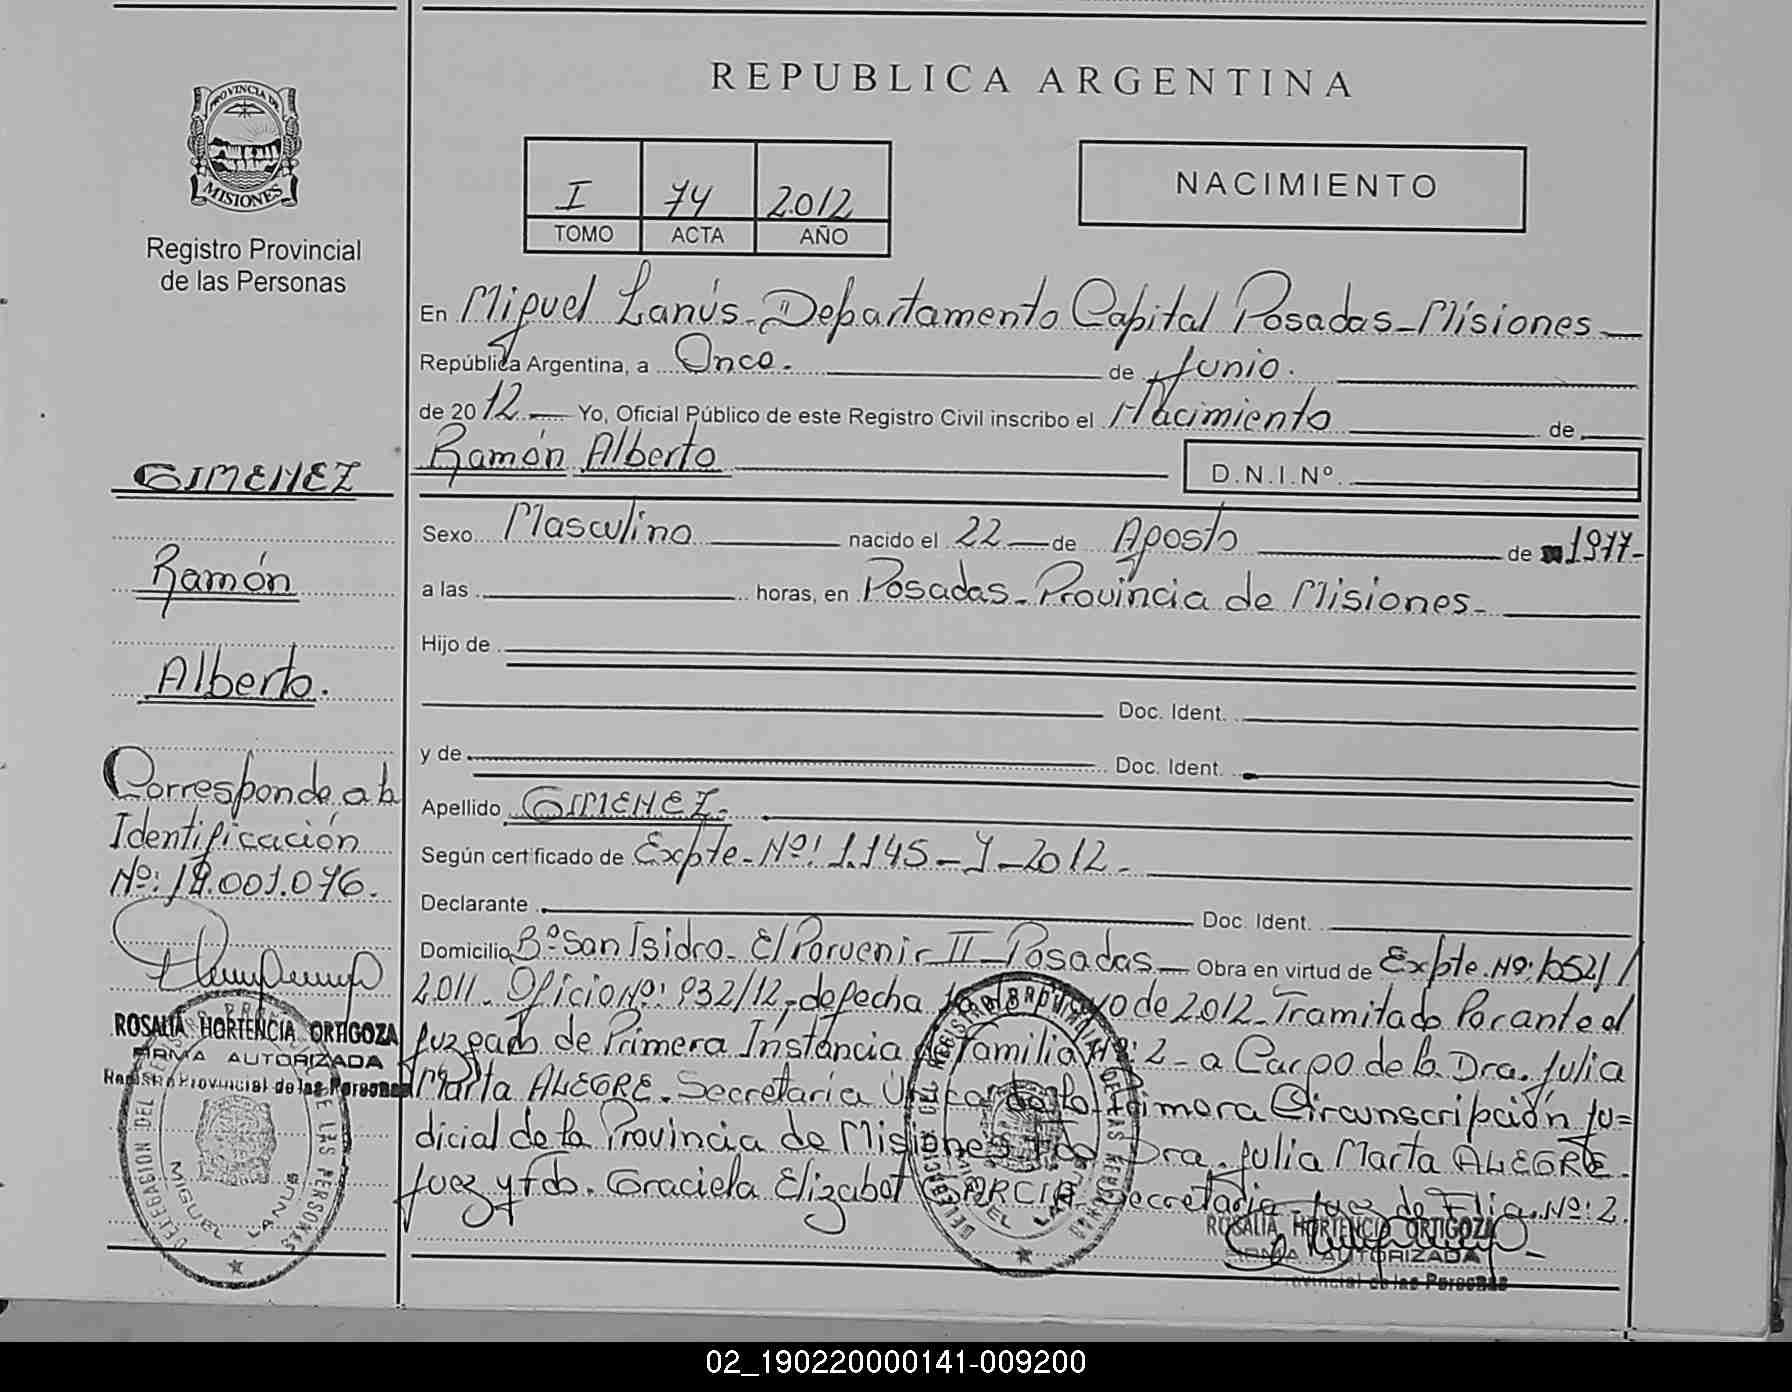 REPUBLICA ARGENTINA
PROVINCIA DE
MISIONES
Registro Provincial
de las Personas
I 74 2012
TOMO ACTA AÑO
NACIMIENTO
En Miguel Lanús-Departamento Capital Posadas-Misiones
República Argentina, a Once. de Junio.
de 2012 Yo, Oficial Público de este Registro Civil inscribo el Nacimiento de
Ramón Alberto D.N.I.Nº.
Sexo Masculino nacido el 22 de Agosto de 1977-
a las horas, en Posadas-Provincia de Misiones-
Hijo de
Doc. Ident.
y de Doc. Ident.
Apellido GIMENEZ-
Según certificado de Expte-Nº: 1.145-Y-2012-
Declarante Doc. Ident.
Domicilio Bº San Isidro-El Porvenir II-Posadas- Obra en virtud de Expte.Nº:1052//
2.011. Oficio Nº: 932/12, de fecha de 2.012-Tramitado Por ante el
Juzgado de Primera Instancia de Familia Nº: 2-a Cargo de la Dra. Julia
Marta ALEGRE. Secretaría Única de la Primera Circunscripción Ju=
dicial de la Provincia de Misiones-Fdo Dra. Julia Marta ALEGRE.
Juez y fdo. Graciela Elizabet GARCIA Secretaria-Juez de Flia.Nº:2.
GIMENEZ
Ramón
Alberto.
Corresponde a la
Identificación
Nº: 19.001.076.
ROSALIA HORTENCIA ORTIGOZA
FIRMA AUTORIZADA
Registro Provincial de las Personas
DELEGACION DEL REGISTRO PROVINCIAL DE LAS PERSONAS
MIGUEL LANUS
DELEGACION DEL REGISTRO PROVINCIAL DE LAS PERSONAS
MIGUEL LANUS
ROSALIA HORTENCIA ORTIGOZA
FIRMA AUTORIZADA
Provincial de las Personas
02_190220000141-009200